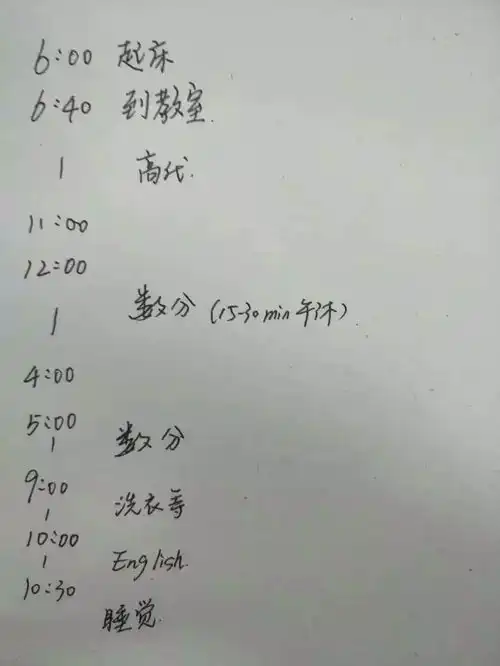 6:00 起床
6:40 到教室.
| 高代.
11:00
12:00
| 数分 (15-30min午休)
4:00
5:00
| 数分
9:00
| 洗衣等
10:00
| English.
10:30
睡觉.